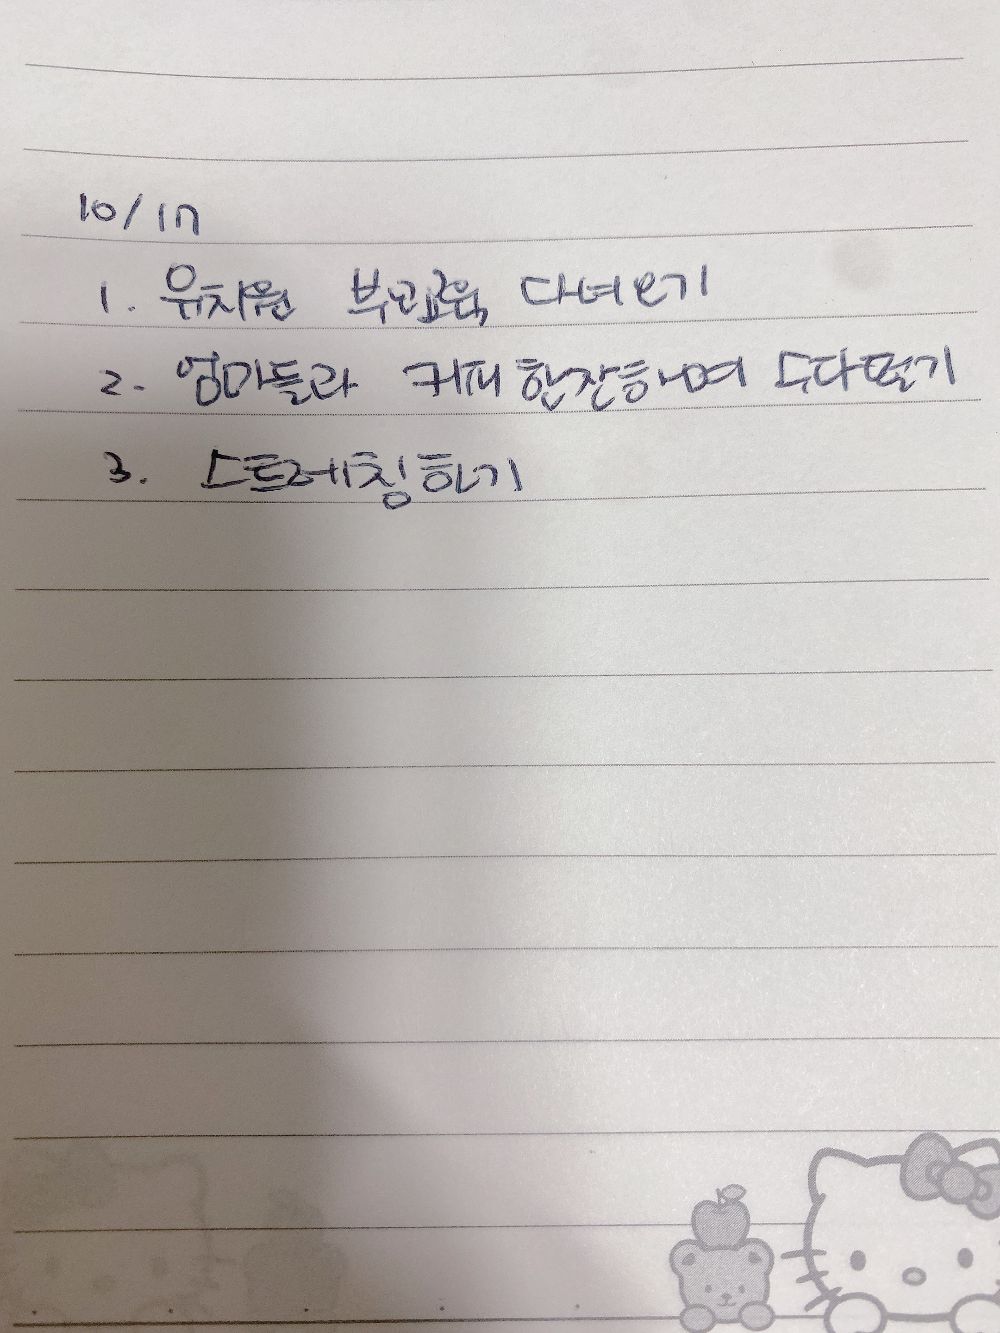 10/17
1. 유치원 부모교육 다녀오기
2. 엄마들과 커피 한잔하며 수다떨기
3. 스트레칭하기